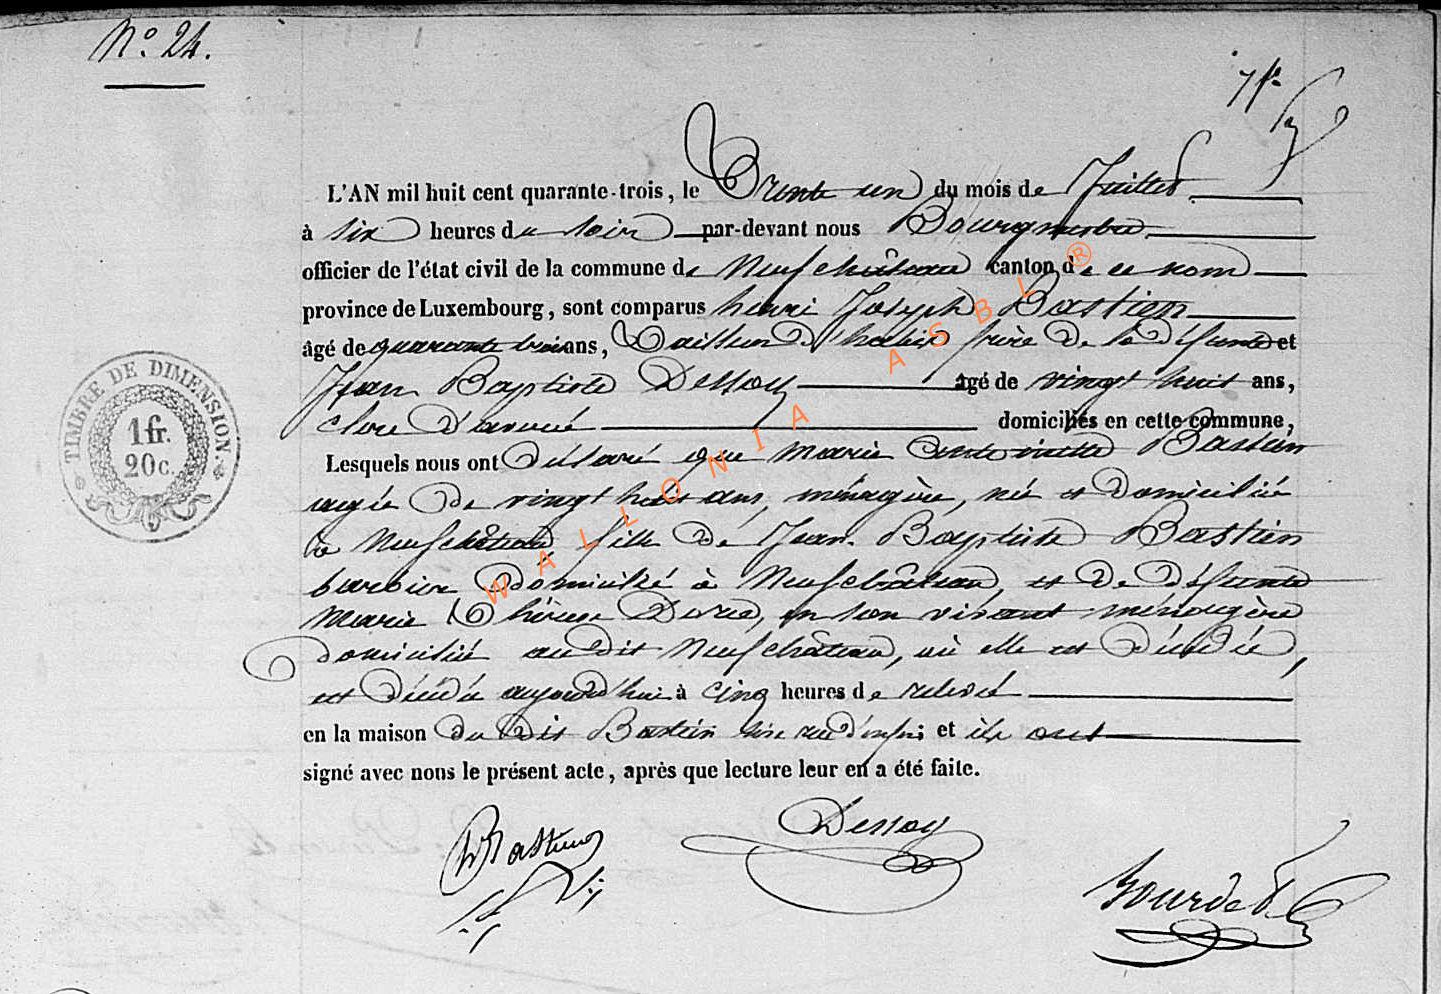 N° 24.
7 f°
L'AN mil huit cent quarante-trois, le Trente un du mois de Juillet
à six heures du soir par-devant nous Bourgmestre
officier de l'état civil de la commune de Neufchâteau canton de ce nom
province de Luxembourg, sont comparus henri Joseph Bastien
âgé de quarante trois ans, Tailleur D'habits frère de la défunte et
Jean Baptiste Dessoy âgé de vingt huit ans,
Clerc D'avoué domiciliés en cette commune,
Lesquels nous ont Déclaré que Marie Bastien
agée De vingt huit ans, ménagère, née et Domiciliée
à Neufchâteau fille De Jean Baptiste Bastien
barbier Domicilié à Neufchâteau, et De Défunte
Marie Thérèse en son vivant ménagère
Domiciliée au dit Neufchâteau, où elle est Décédée,
est Décédée aujourd'hui à cinq heures de relevé
en la maison Du Dit Bastien sise rue d'enfer; et ils ont
signé avec nous le présent acte, après que lecture leur en a été faite.
TIMBRE DE DIMENSION
1 fr.
20 c.
WALLONIA ASBL ®
Bastien
Dessoy